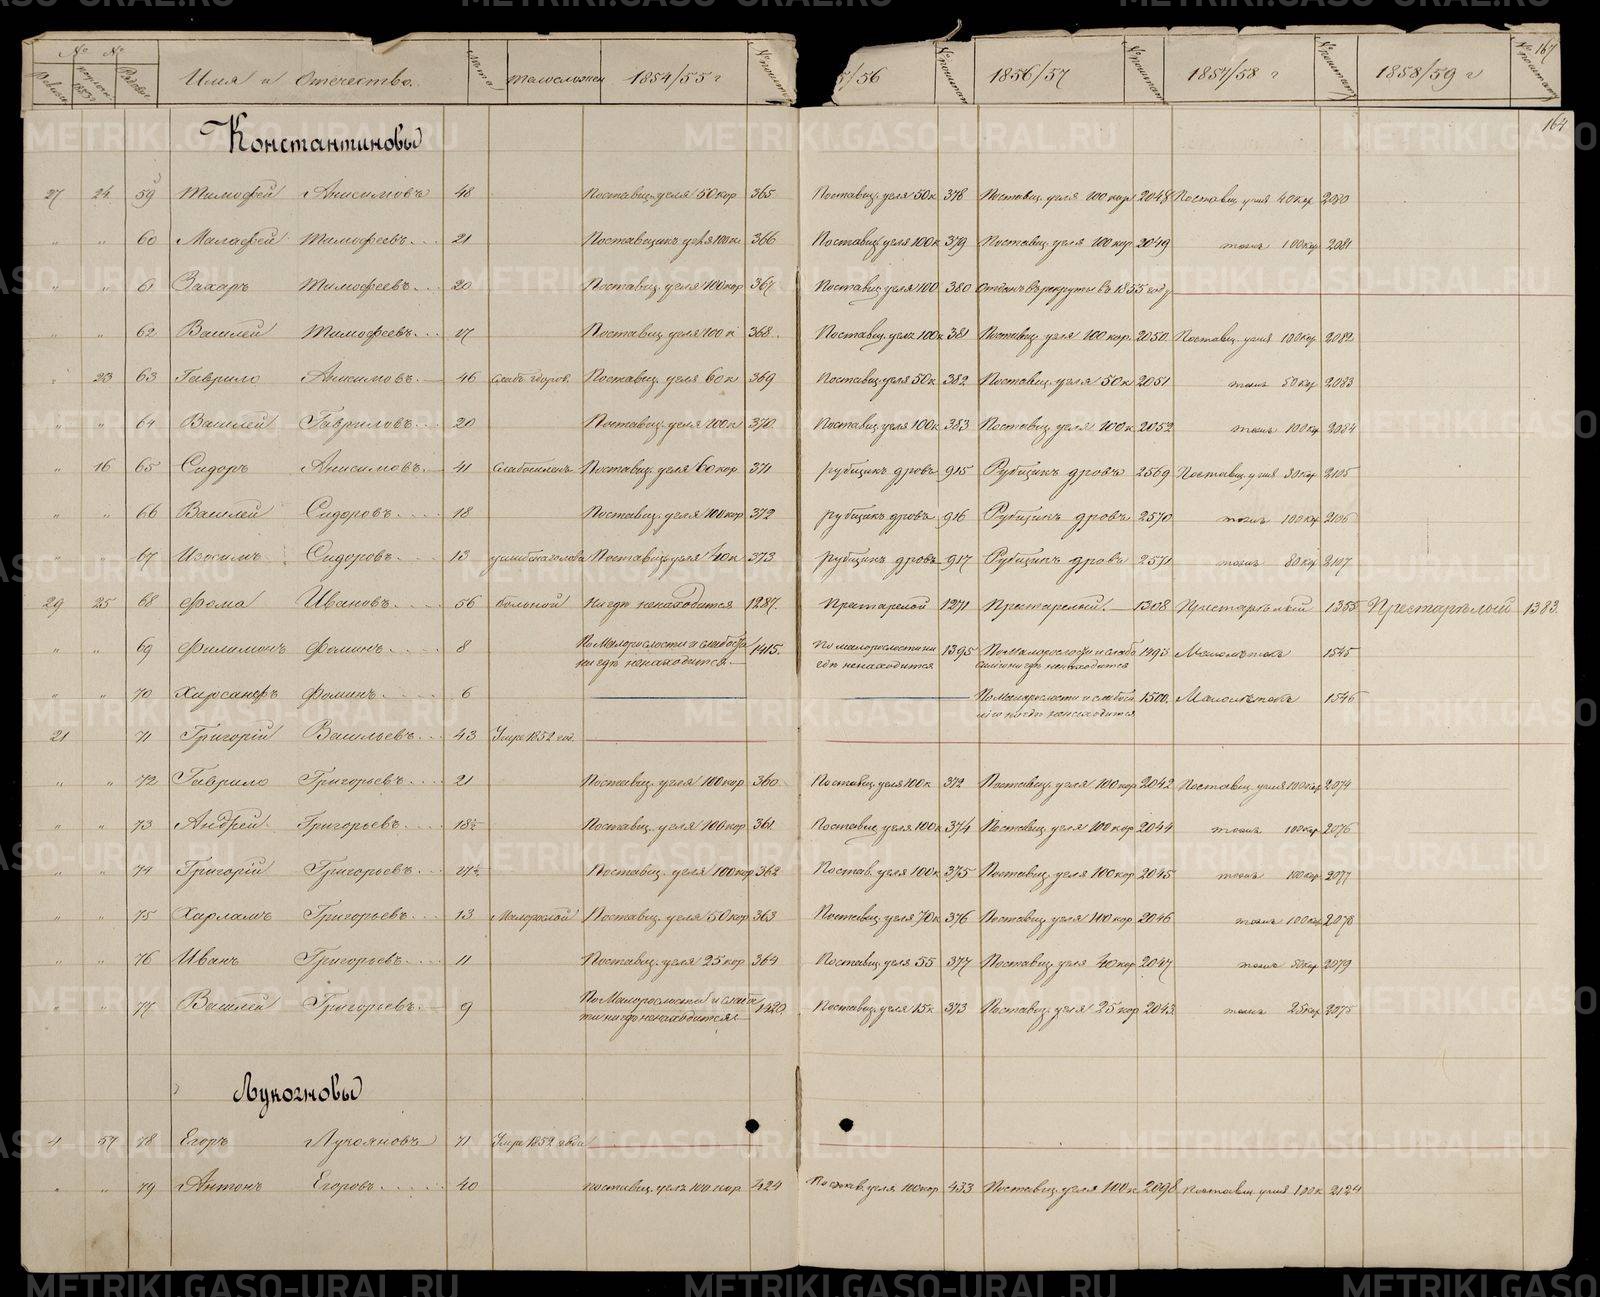 № № Имя и Отечество Лета Телосложен 1854/55 г № поштат 5/56 № поштат 1856/57 № поштат 1857/58 г № поштату 1858/59 г № поштату 167
164
Константиновы
27 24 59 Тимофей Анисимовъ 48 Поставщ. угля 50 кор 365 Поставщ. угля 50 к 378 Поставщ. угля 100 кор 2048 Поставщ угля 40 кор 2080
" " 60 Малафей Тимофеевъ 21 Поставщикъ угля 100 к 366 Поставщ угля 100 к 379 Поставщ. угля 100 кор 2049 тоже 100 кор 2081
" " 61 Захаръ Тимофеевъ 20 Поставщ. угля 100 кор 367 Поставщ угля 100 380 Отданъ въ рекруты въ 1855 году
" " 62 Василей Тимофеевъ 17 Поставщ. угля 100 к 368 Поставщ. угля 100 к 381 Поставщ. угля 100 кор. 2050 Поставщ. угля 100 кор 2082
" 23 63 Гаврило Анисимовъ 46 слабъ здоров. Поставщ. угля 60 к 369 Поставщ. угля 50 к 382 Поставщ. угля 50 к 2051 тоже 50 кор 2083
" " 64 Василей Гавриловъ 20 Поставщ. угля 100 к 370 Поставщ угля 100 к 383 Поставщ. угля 100 к 2052 тоже 100 кор 2084
" 16 65 Сидоръ Анисимовъ 41 Слабосиленъ Поставщ. угля 60 кор. 371 рубщикъ дровъ 915 Рубщикъ дровъ 2569 Поставщ. угля 30 кор 2105
" " 66 Василей Сидоровъ 18 Поставщ. угля 100 кор 372 рубщикъ дровъ 916 Рубщикъ дровъ 2570 тоже 100 кор 2106
" " 67 Изосимъ Сидоровъ 13 Поставщ угля 40 к 373 рубщикъ дровъ 917 Рубщикъ дровъ 2571 тоже 80 кор 2107
29 25 68 Фома Ивановъ 56 больной Нигде ненаходится 1287 Престарелой 1271 Престарелый 1308 Престарѣлый 1355 Престарѣлый 1383
" " 69 Филимонъ Фоминъ 8 По Малорослости и слабости нигде ненаходится 1415 По малорослости ни где ненаходится 1395 По Малорослости и слабо силию нигде ненаходится 1495 Малолѣтокъ 1545
" " 70 Хирсанфъ Фоминъ 6 По Малорослости и слабоси лию нигде ненаходится 1500 Малолѣтокъ 1546
21 71 Григорій Васильевъ 43 Умре 1852 год.
" " 72 Гаврило Григорьевъ 21 Поставщ. угля 100 кор 360 Поставщ угля 100 к 372 Поставщ. угля 100 кор 2042 Поставщ. угля 100 кор 2074
" " 73 Андрей Григорьевъ 18½ Поставщ. угля 100 кор 361 Поставщ угля 100 к 374 Поставщ. угля 100 кор 2044 тоже 100 кор 2076
" " 74 Григорій Григорьевъ 17½ Поставщ. угля 100 кор 362 Постав. угля 100 к 375 Поставщ. угля 100 кор 2045 тоже 100 кор 2077
" " 75 Харламъ Григорьевъ 13 Малорослой Поставщ. угля 50 кор 363 Поставщ. угля 70 к 376 Поставщ. угля 100 кор 2046 тоже 100 кор 2078
" " 76 Иванъ Григорьевъ 11 Поставщ. угля 25 кор 364 Поставщ. угля 55 377 Поставщ. угля 40 кор 2047 тоже 50 кор 2079
" " 77 Василей Григорьевъ 9 По Малорослости и слабо сти нигде ненаходится 1420 Поставщ. угля 15 к 373 Поставщ. угля 25 кор 2043 тоже 25 кор 2075
Лукояновы
4 57 78 Егоръ Лукояновъ 71 Умре 1852 года
" " 79 Антонъ Егоровъ 40 поставщ. угля 100 кор 424 Поставщ. угля 100 кор 433 Поставщ. угля 100 к 2098 Поставщ угля 100 к 2124
METRIKI.GASO-URAL.RU